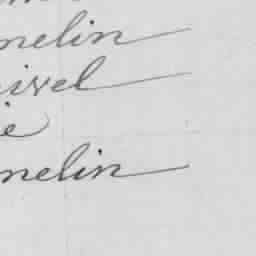 melin
ivel
ie
melin